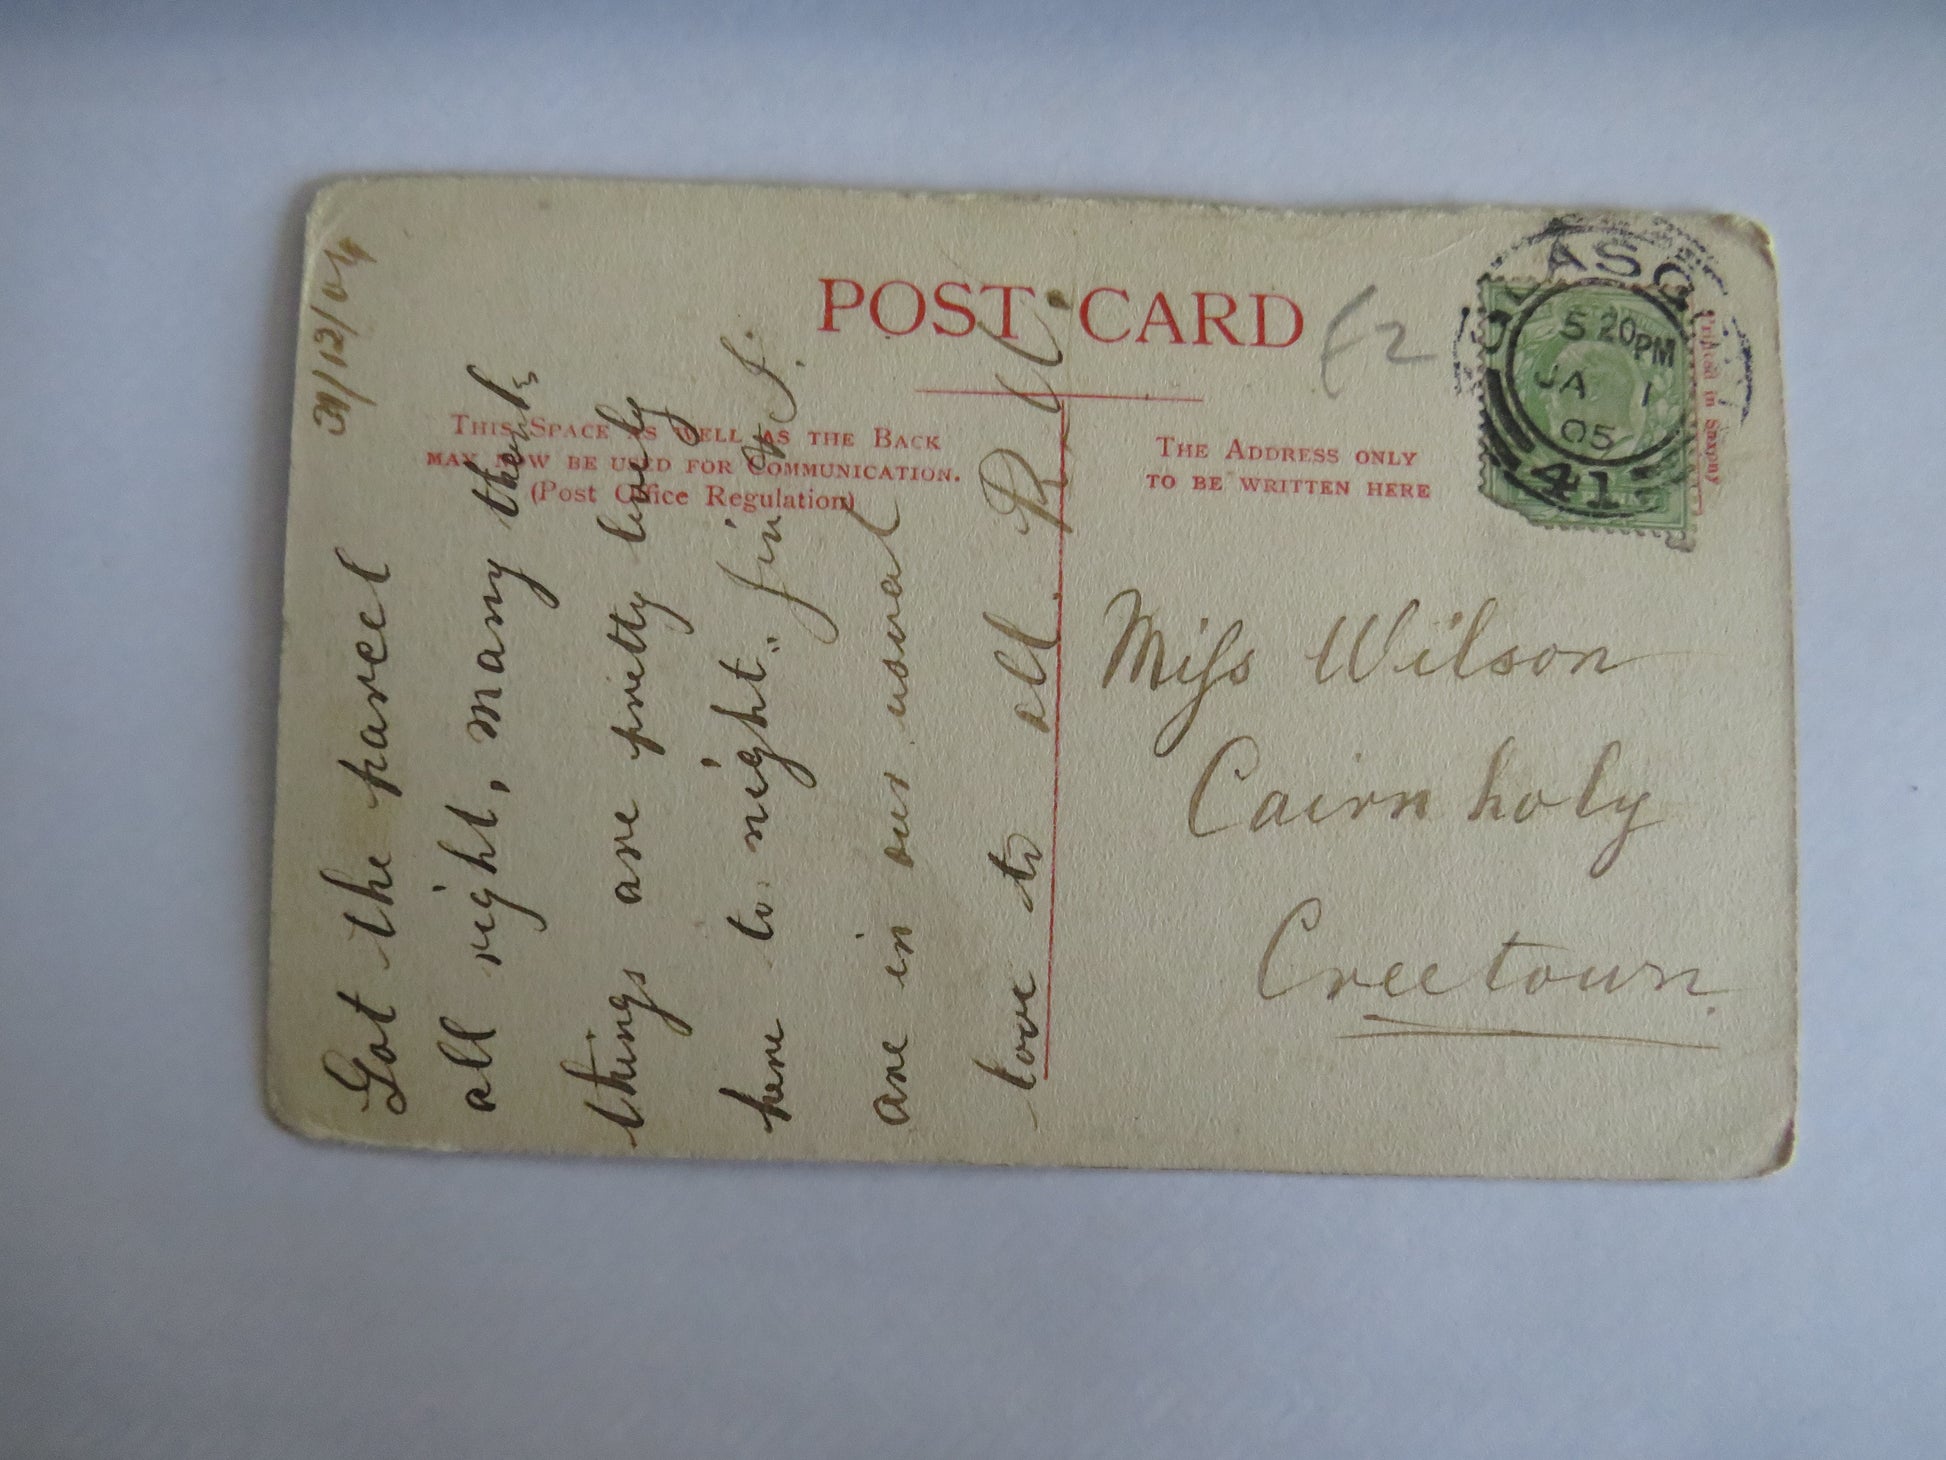 POST CARD
£2
THIS SPACE AS WELL AS THE BACK
MAY NOW BE USED FOR COMMUNICATION.
(Post Office Regulation)
THE ADDRESS ONLY
TO BE WRITTEN HERE
GLASG
5 20PM
JA 1
05
41
in Saxony
Miss Wilson
Cairnholy
Creetown.
31/12/04
Got the parcel
all right, many thanks
things are pretty lively
here to night. Jim & J.
are in our usual
love to all. R